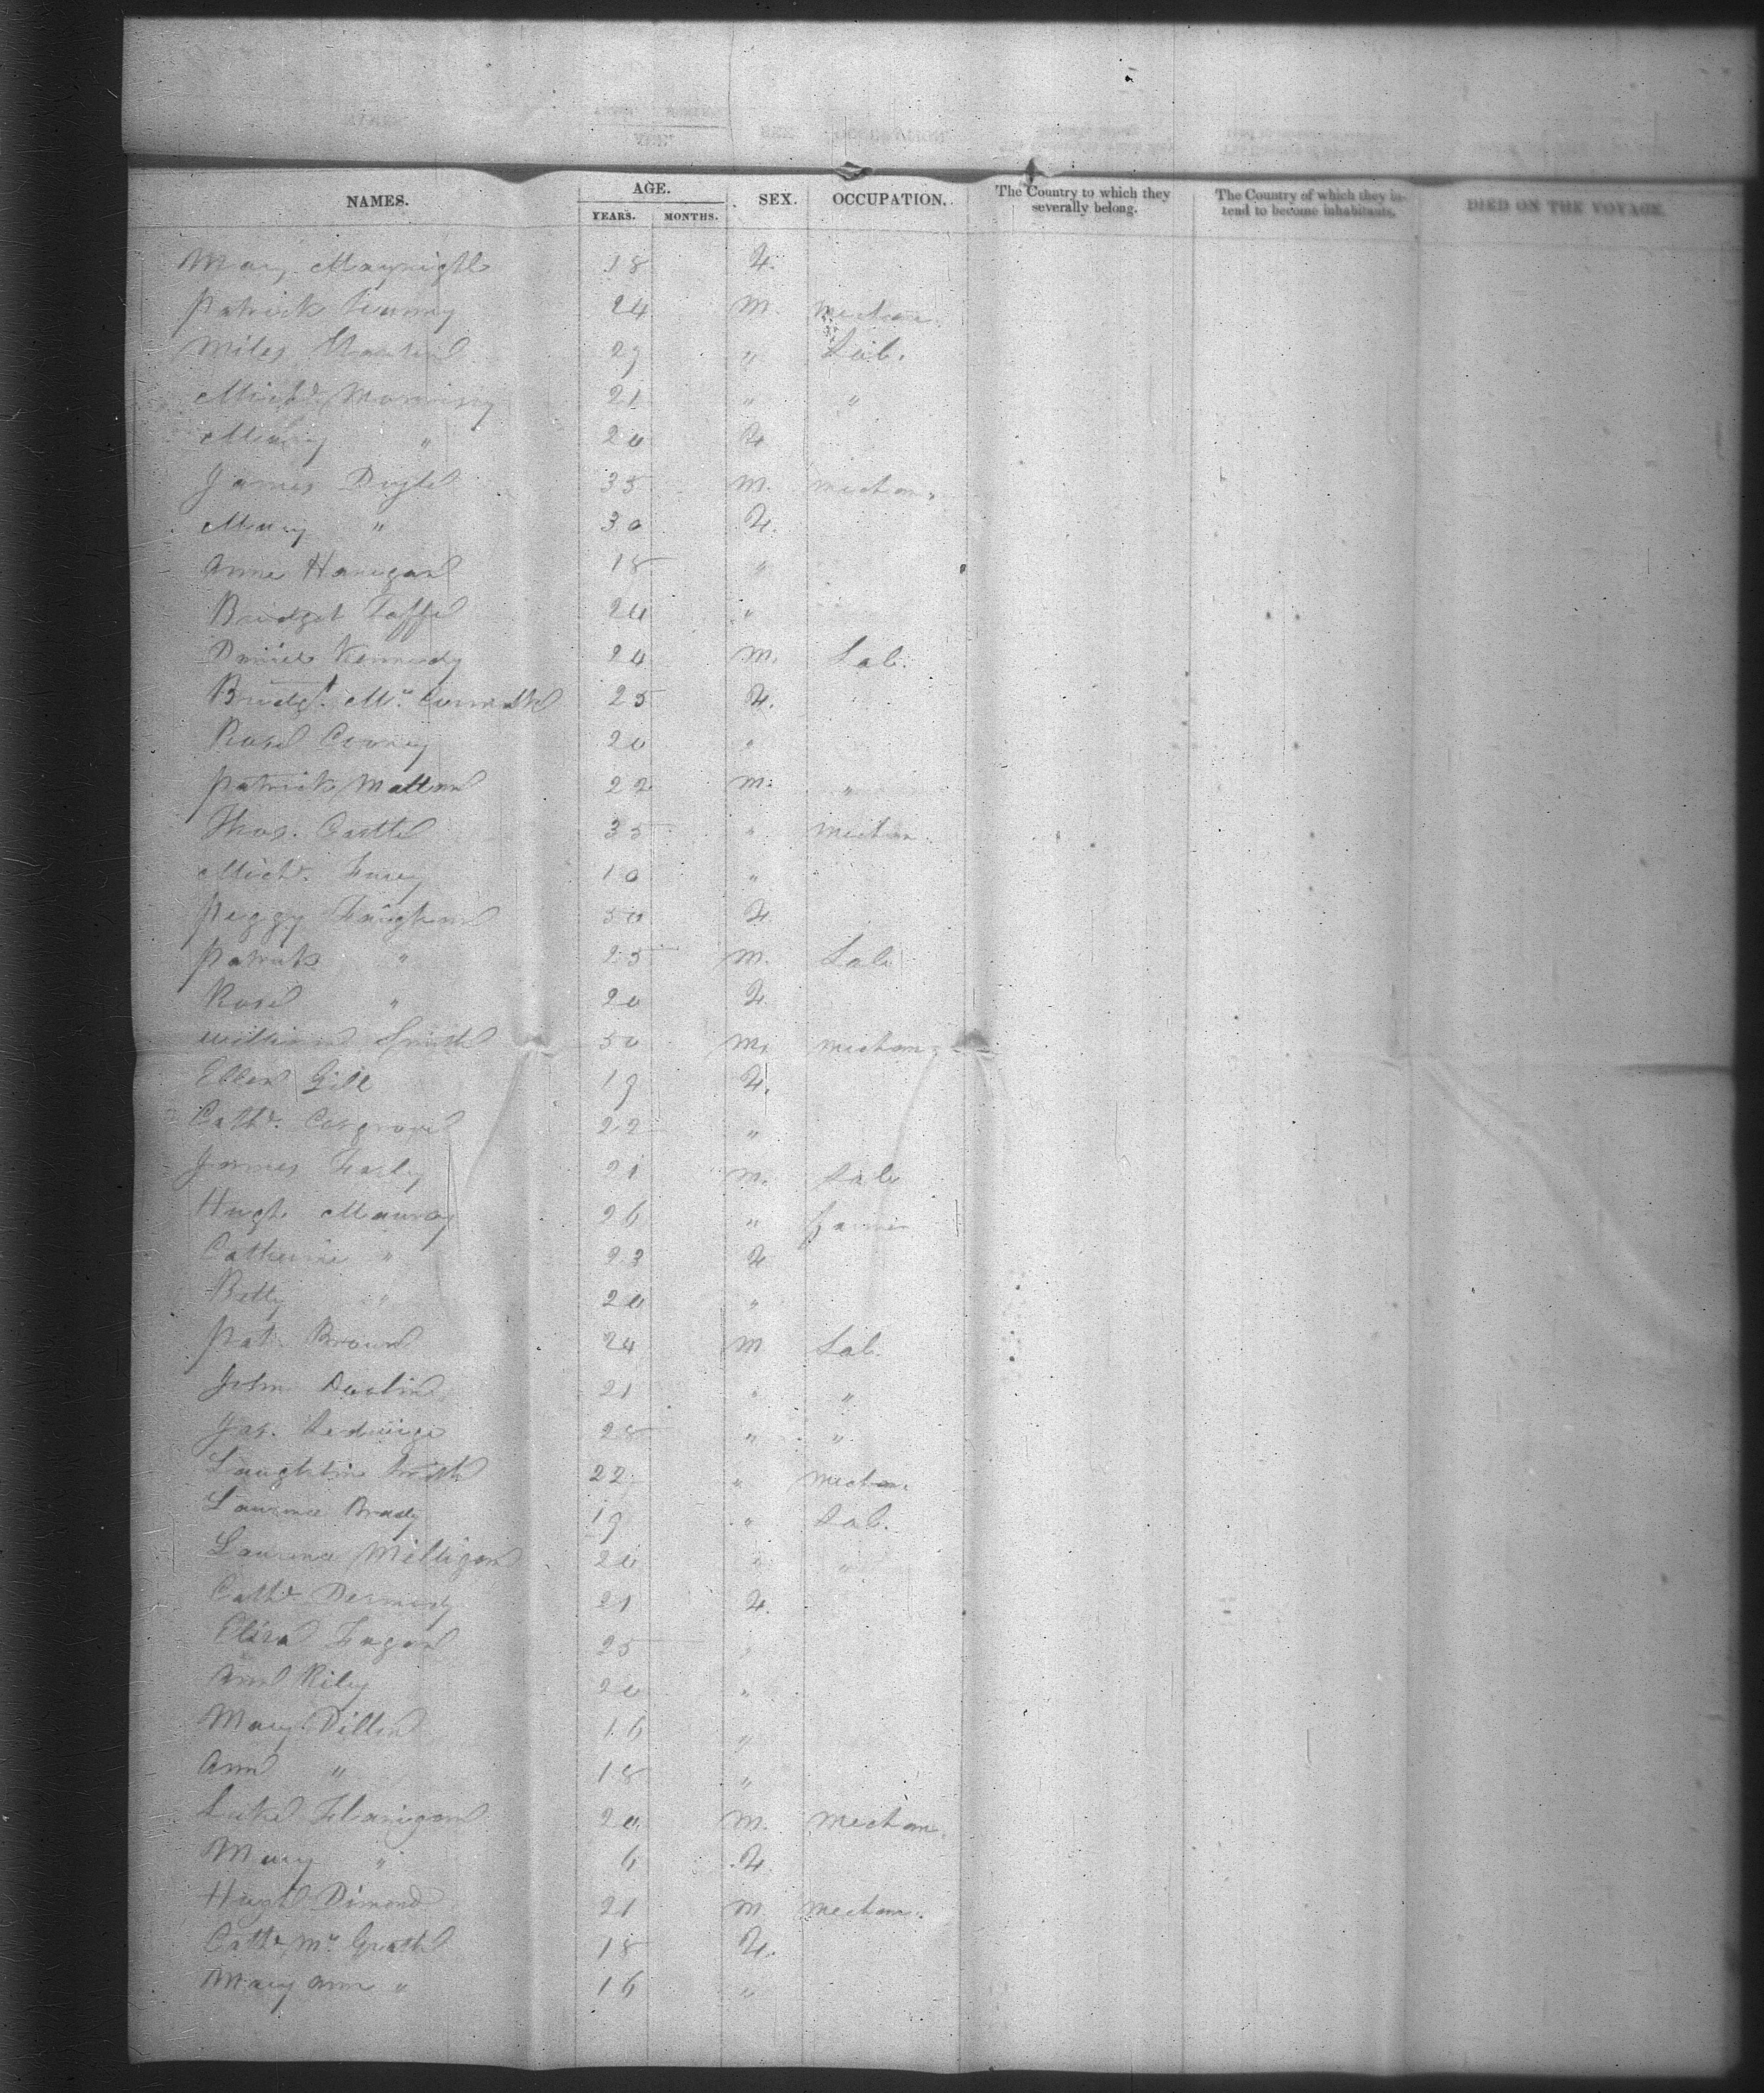 NAMES. AGE. SEX. OCCUPATION. The Country to which they severally belong. The Country of which they intend to become inhabitants. DIED ON THE VOYAGE.
YEARS. MONTHS.
Mary 18 F.
Patrick 24 M. Mechan.
Miles 29 " Lab.
Michl. Morrisey 21 " "
Mary " 20 F
James Doyle 35 M. Mechan.
Mary " 30 F.
Anne Hanigan 18 "
Bridget Taffe 20 "
Daniel Kennedy 24 M. Lab.
Bridgt. Mc. 25 F.
Rose 20 "
Patrick Mallon 22 M. "
Thos. Castle 35 " Mechan.
Michl. 10 "
Peggy 50 F.
Patrick " 25 M. Lab
Rose " 20 F.
William Smith 50 M. Mechan.
Ellen Gill 19 F.
Cathe. Cosgrove 22 "
James Farly 21 M. Lab
Hugh 26 " Farmer
Catherine " 23 F
Betty " 20 "
Pat. Brown 24 M Lab.
John Devlin 21 " "
Jas. 28 " "
Laughlin Smith 22 " Mechan.
Laurence Brady 19 " Lab.
Laurence Milligan 20 " "
Cathe. Dermody 21 F.
Eliza Fagan 25 "
Ann Riley 20 "
Mary Dillon 16 "
Ann " 18 "
Luke Flanigan 20 M. Mechan.
Mary " 6 F.
Hugh Dimond 21 M. Mechan.
Cathe. Mc. Grath 18 F.
Mary Ann " 16 "